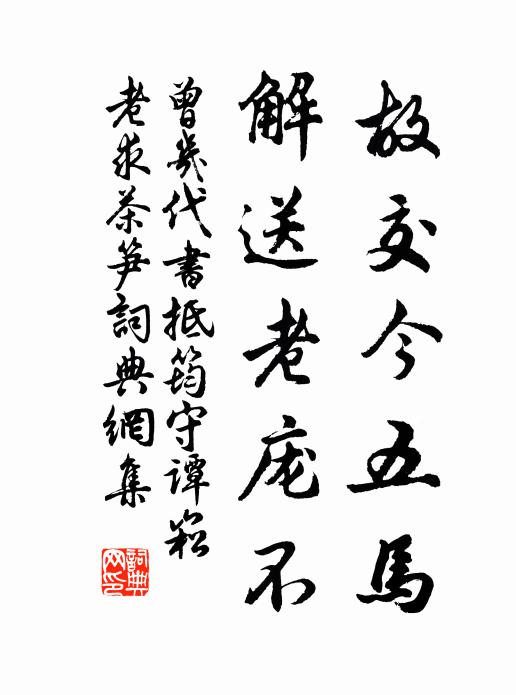 故交今五馬
解送老庞不
曾幾代書抵筠守譚崧
老求茶笋詞典網集
詞典网印